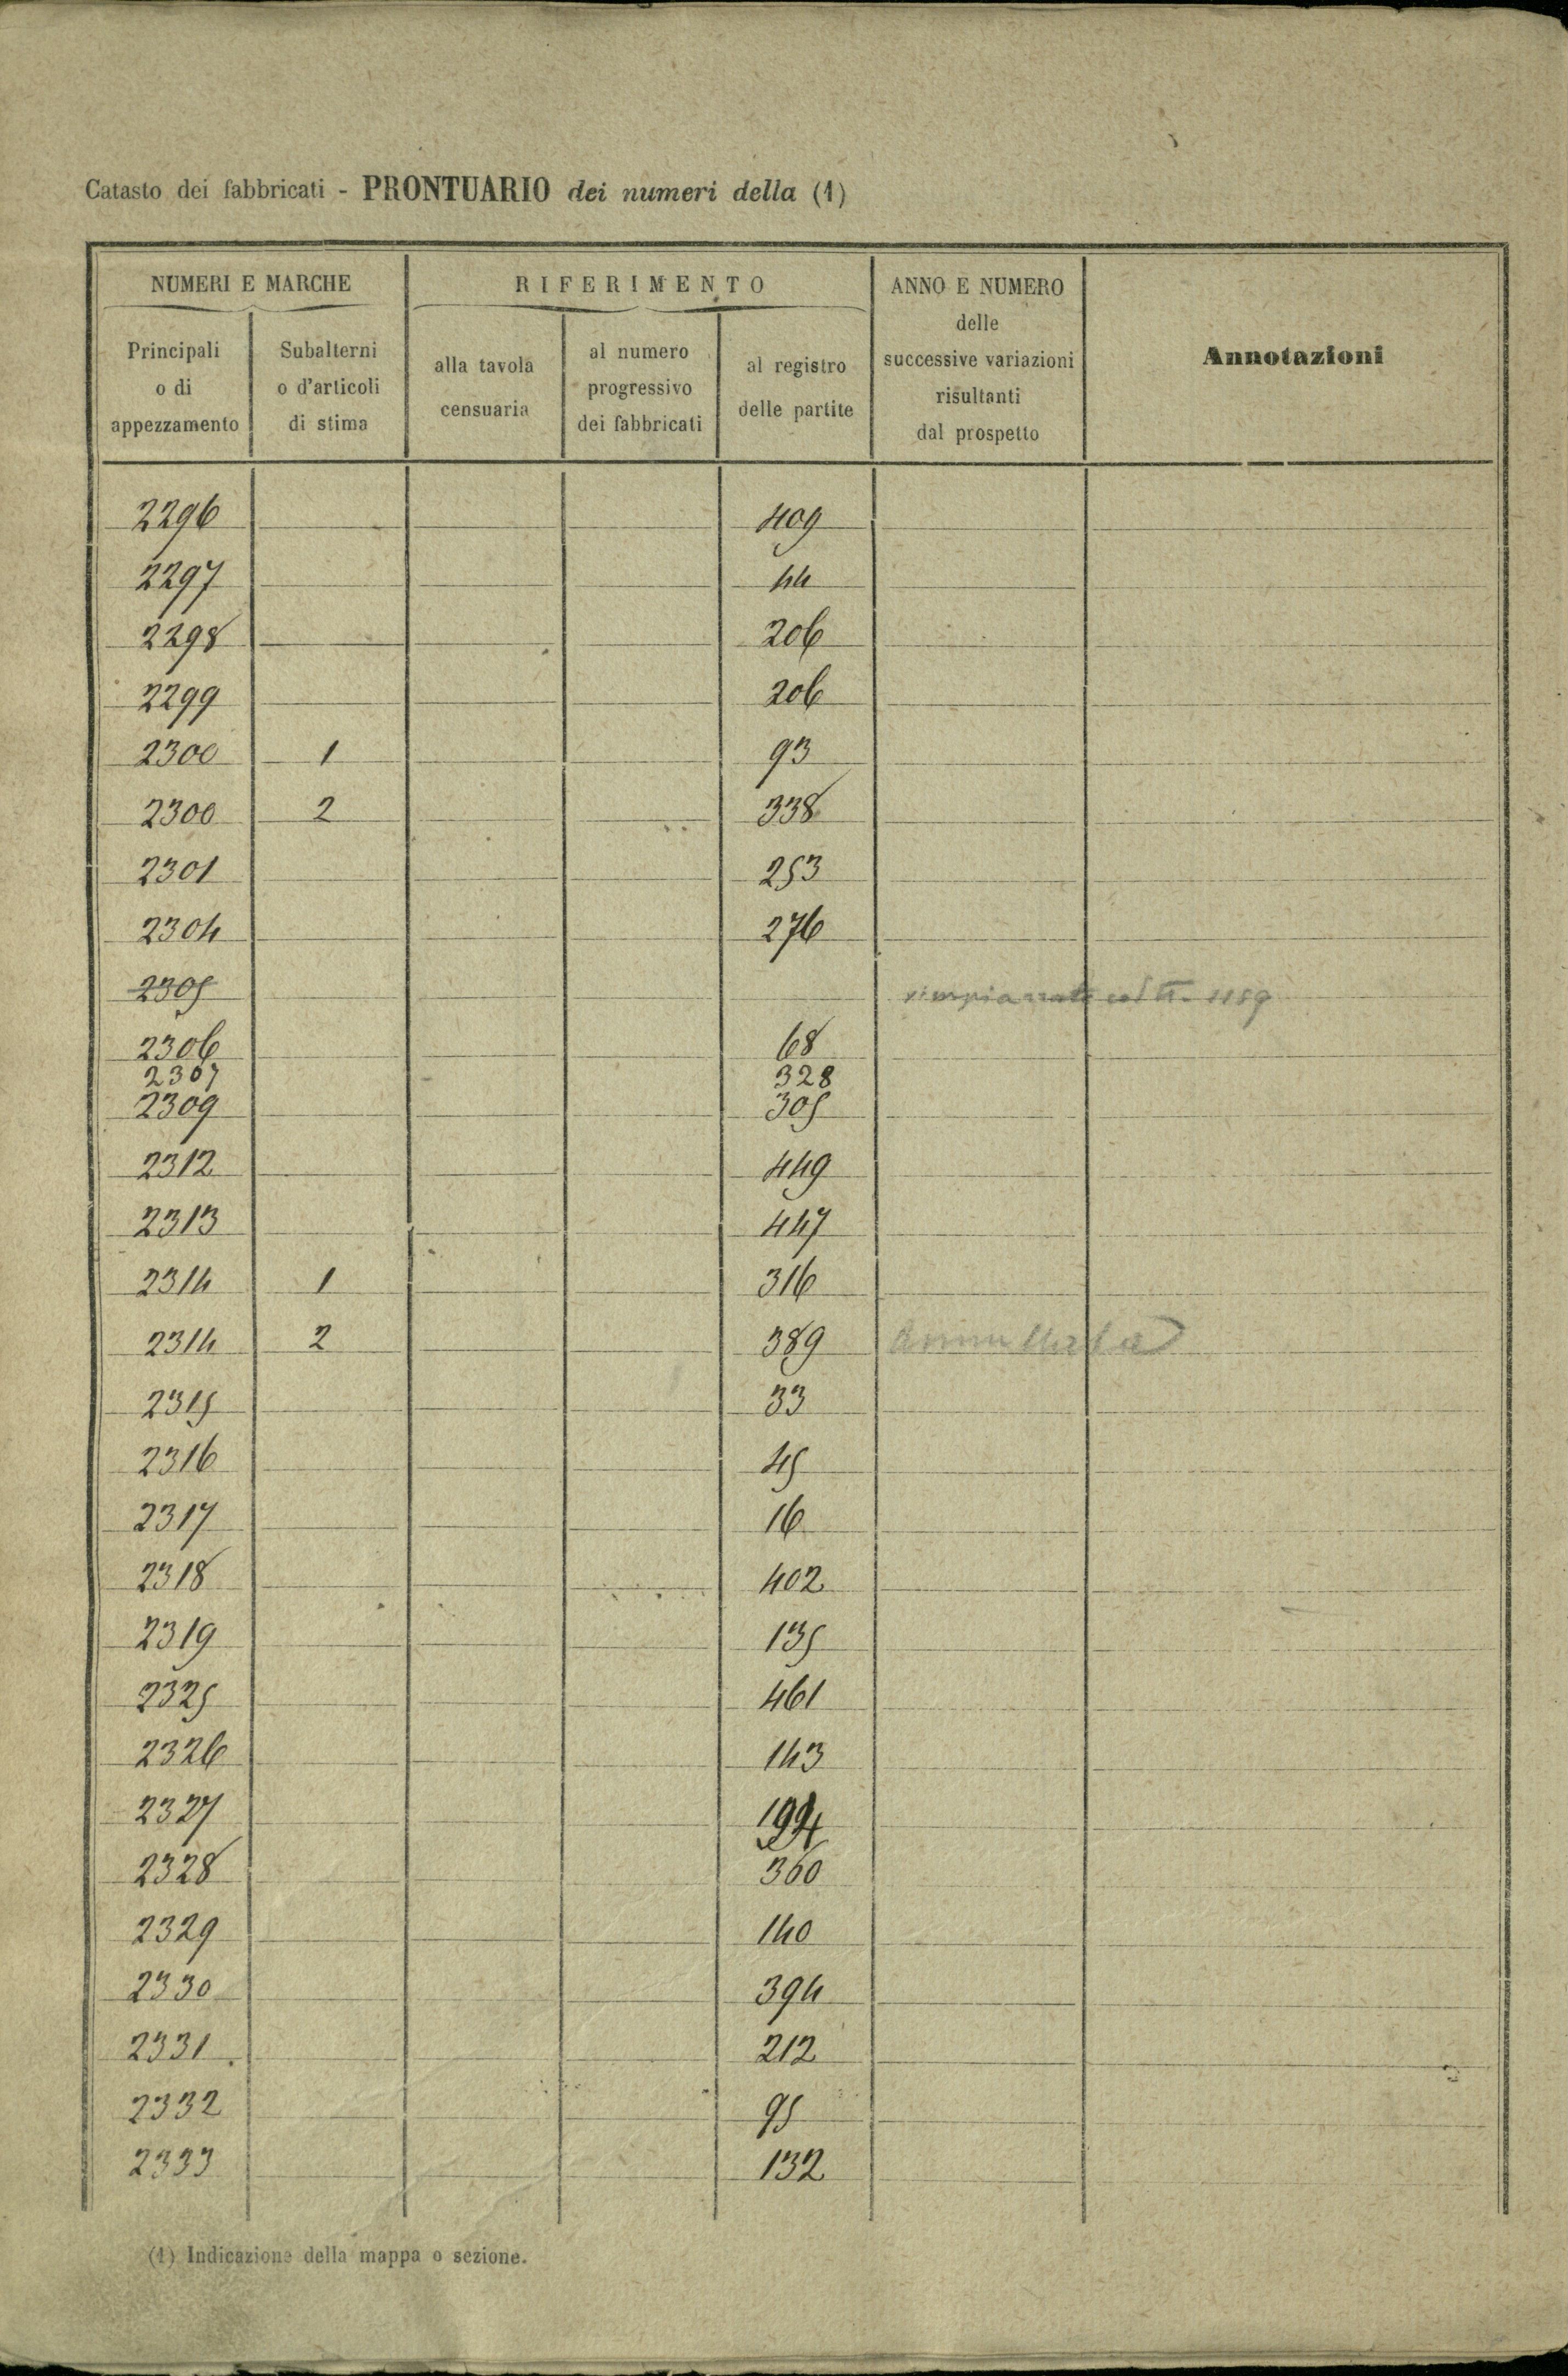 Catasto dei fabbricati - PRONTUARIO dei numeri della (1)
NUMERI E MARCHE
RIFERIMENTO
ANNO E NUMERO
delle
successive variazioni
risultanti
dal prospetto
Annotazioni
Principali
o di
appezzamento
Subalterni
o d'articoli
di stima
alla tavola
censuaria
al numero
progressivo
dei fabbricati
al registro
delle partite
2296 409
2297 44
2298 206
2299 206
2300 1 93
2300 2 338
2301 253
2304 276
2305 rimpiazzato col n. 1159
2306 68
2307 328
2309 305
2312 449
2313 447
2314 1 316
2314 2 389 Annullata
2315 33
2316 45
2317 16
2318 402
2319 135
2325 461
2326 143
2327 194
2328 360
2329 140
2330 394
2331 212
2332 95
2333 132
(1) Indicazione della mappa o sezione.